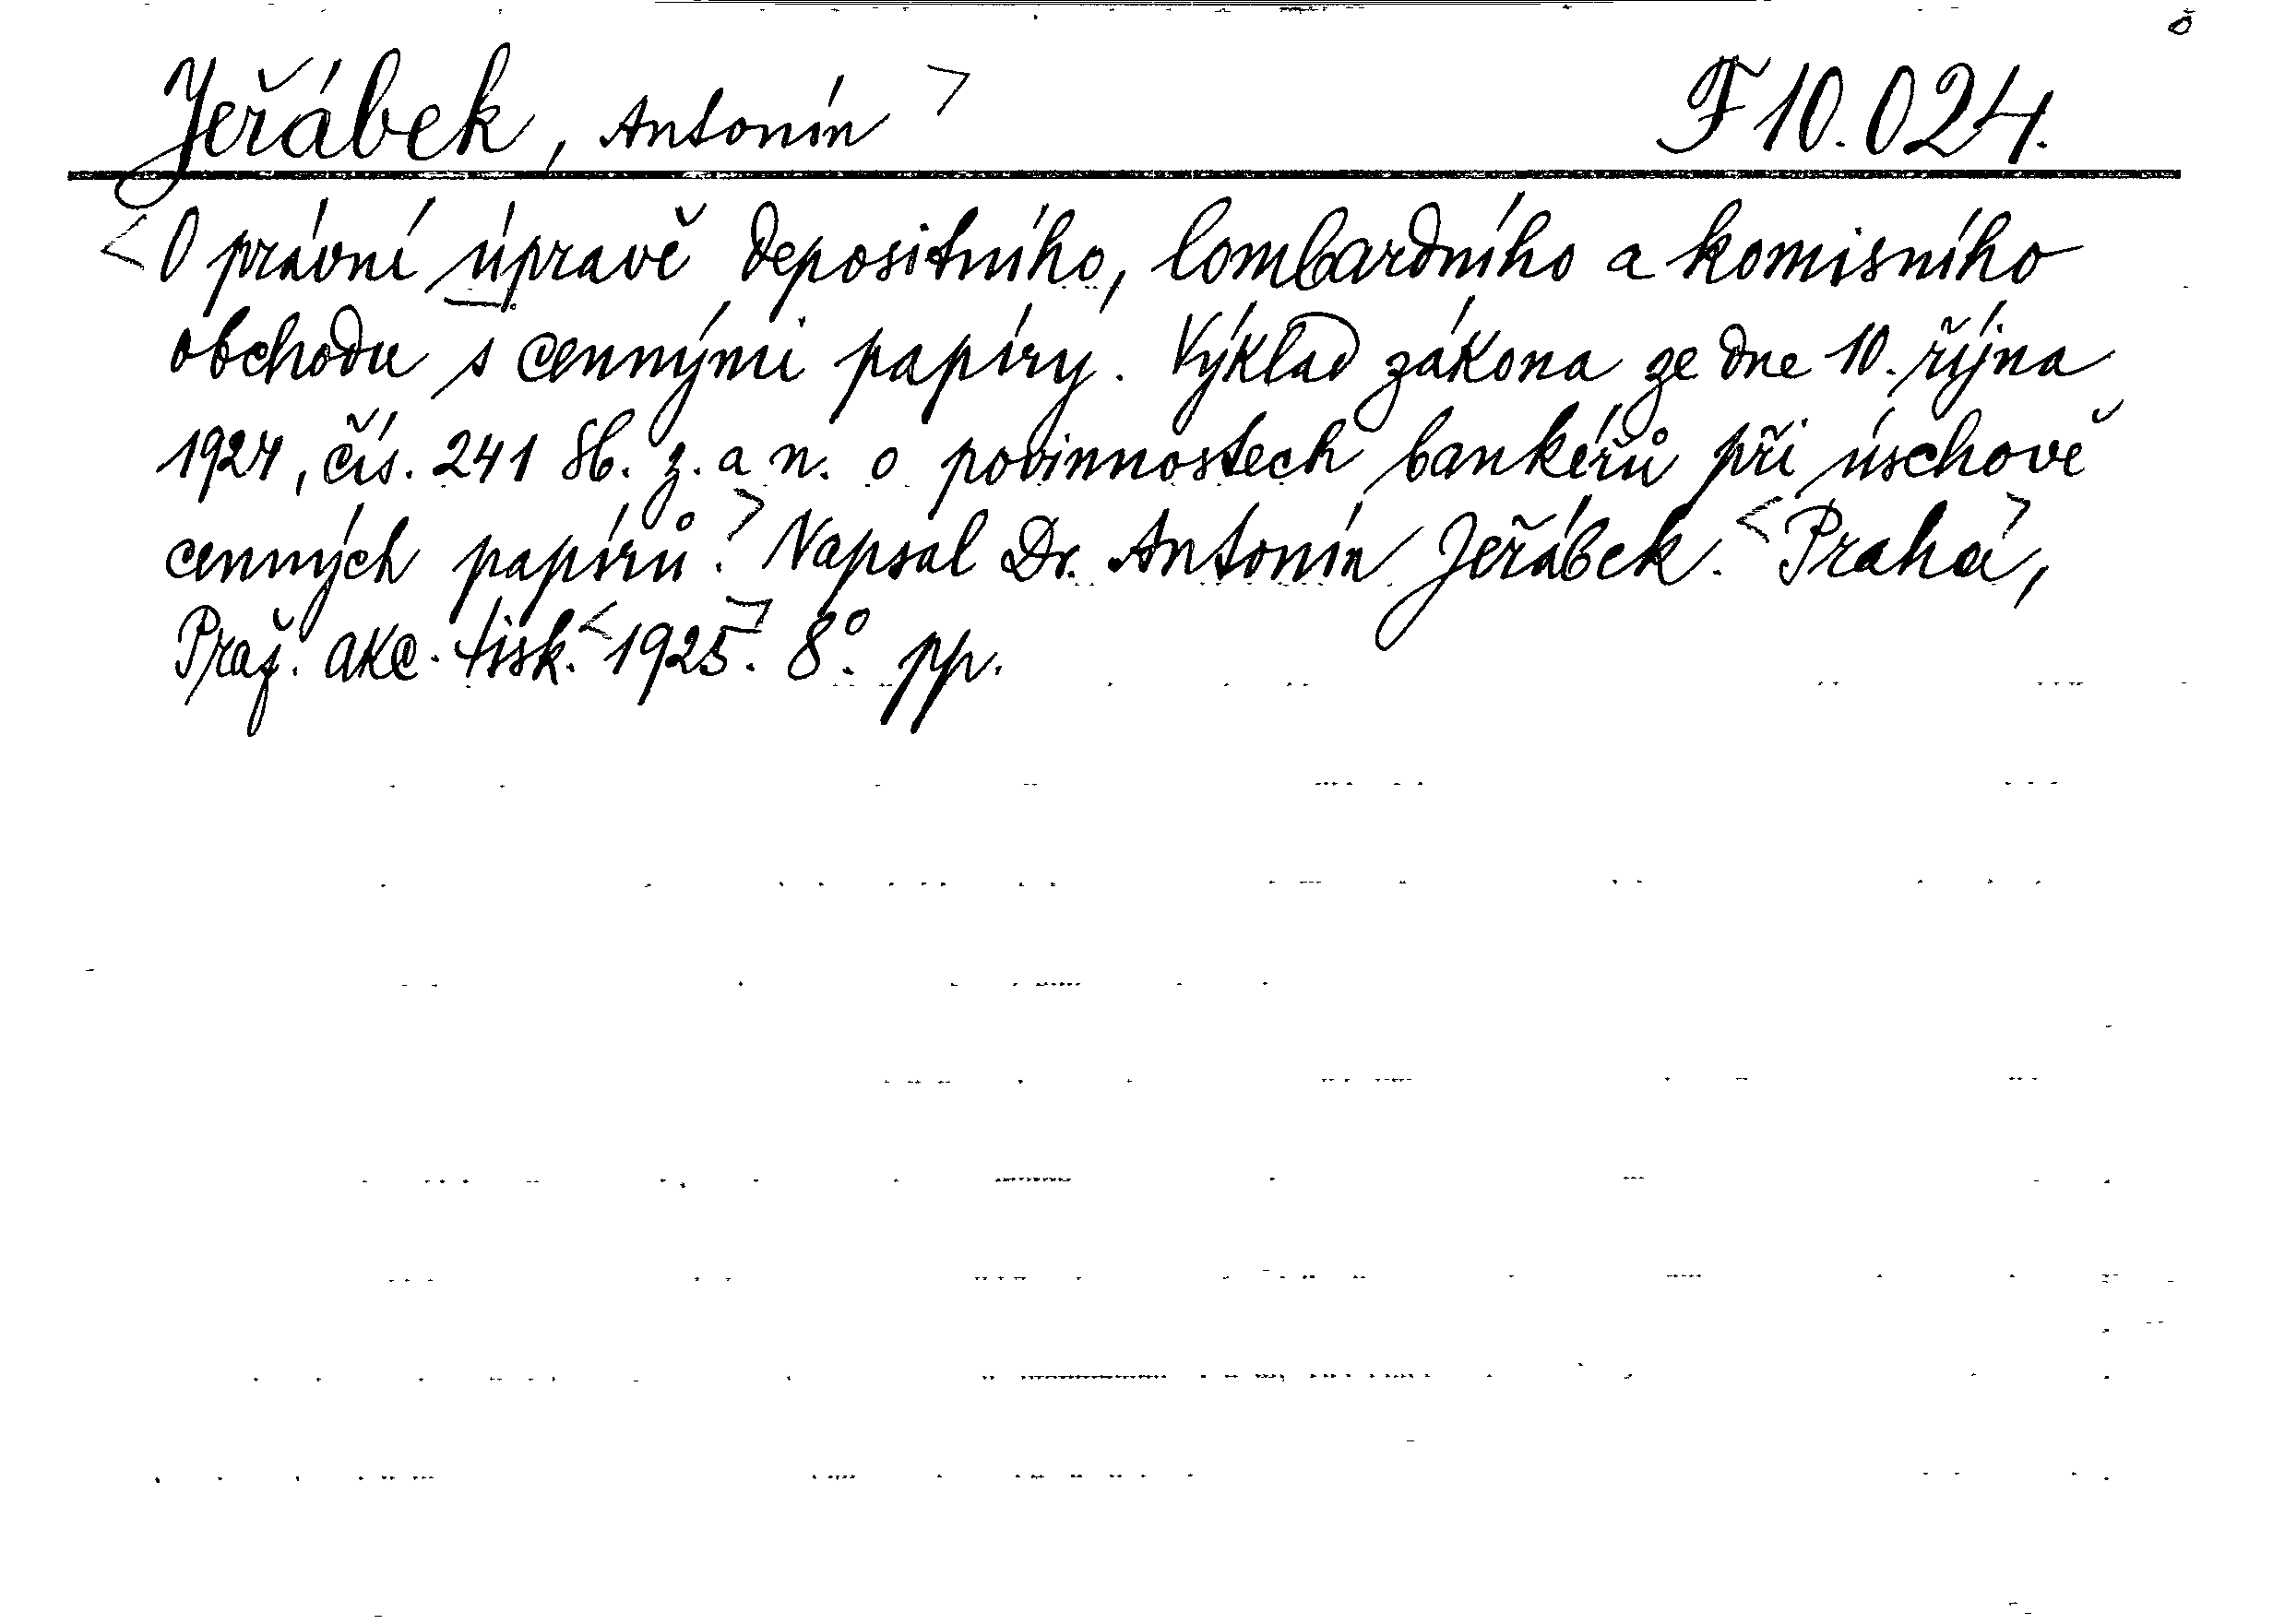 Jeřábek, Antonín > F 10.024.
<O právní úpravě depositního, lombardního a komisního
obchodu s cennými papíry. Výklad zákona ze dne 10. října
1924, čís. 241 Sb. z. a n. o povinnostech bankéřů při úschově
cenných papírů.> Napsal Dr. Antonín Jeřábek. <Praha>,
Praž. akc. tisk. <1925>. 8°. pp.